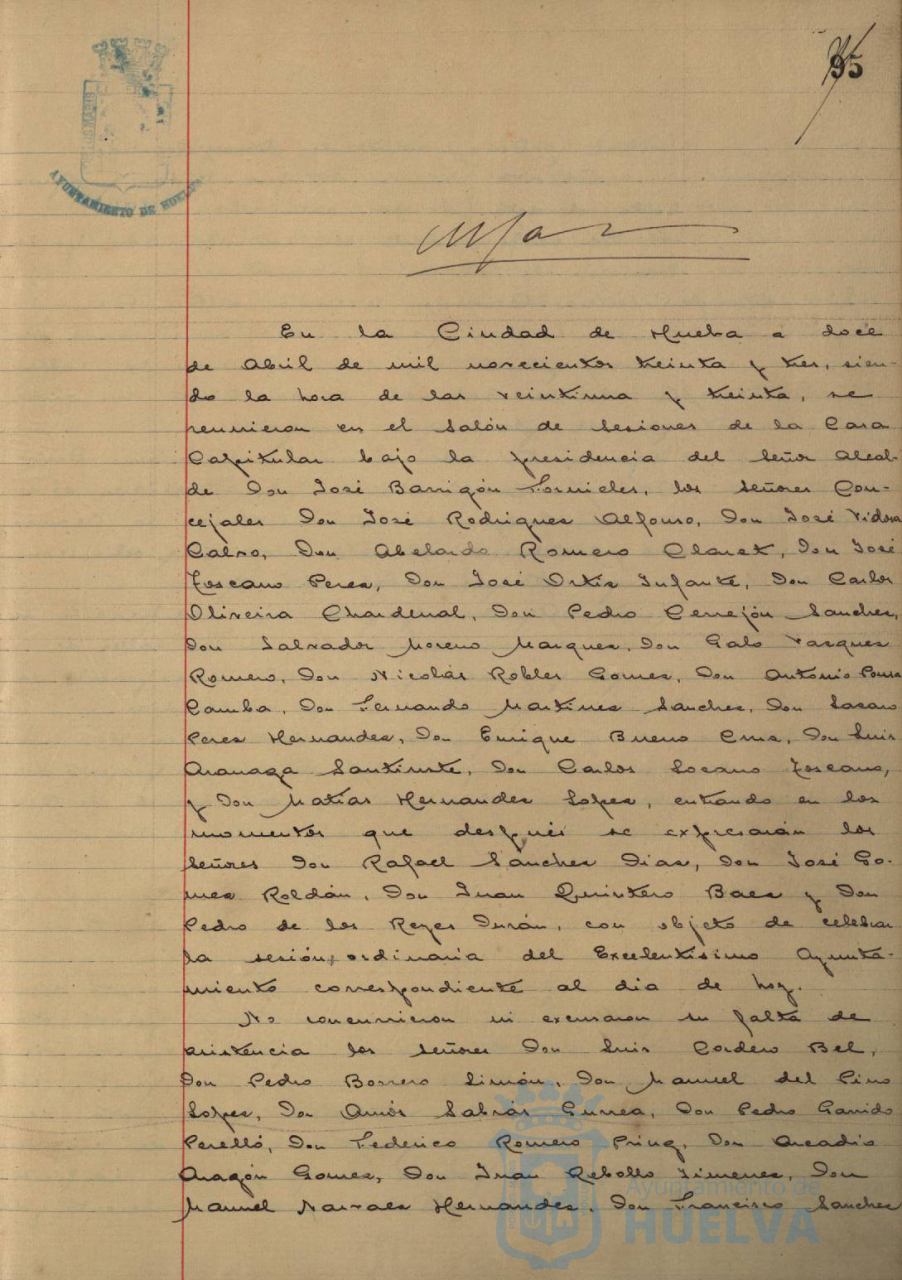 95
AYUNTAMIENTO DE HUELVA
En la Ciudad de Huelva a doce
de Abril de mil novecientos treinta y tres, sien-
do la hora de las veintiuna y treinta, se
reunieron en el salón de sesiones de la Casa
Capitular bajo la presidencia del señor Alcal-
de Don José Barrigón Fornieles, los señores Con-
cejales Don José Rodrigues Alfonso, Don José Vidosa
Calvo, Don Abelardo Romero Claret, Don José
Toscano Peres, Don José Ortiz Infante, Don Carlos
Oliveira Chardenal, Don Pedro Cerrejón Sanches,
Don Salvador Moreno Marques, Don Galo Vasques
Romero, Don Nicolás Robles Gomes, Don Antonio Pousa
Camba, Don Fernando Martines Sanches, Don Lasaro
Peres Hernandes, Don Enrique Bueno Crus, Don Luis
Aranaga Santiuste, Don Carlos Locano Toscano,
y Don Matías Hernandes Lopes, entrando en los
momentos que después se expresarán los
señores Don Rafael Sánches Dias, Don José Go-
mes Roldán, Don Juan Quintero Baes y Don
Pedro de los Reyes Durán, con objeto de celebrar
la sesión, ordinaria del Excelentísimo Ayunta-
miento correspondiente al dia de hoy.
No concurrieron ni excusaron su falta de
asistencia los señores Don Luis Cordero Bel,
Don Pedro Borrero Limón, Don Manuel del Pino
Lopes, Don Amós Sabrás Gurrea, Don Pedro Garrido
Perelló, Don Federico Romero Pring, Don Arcadio
Aragón Gomes, Don Juan Rebollo Jimenes, Don
Manuel Narvaes Hernandes, Don Francisco Sanches
Ayuntamiento de
HUELVA